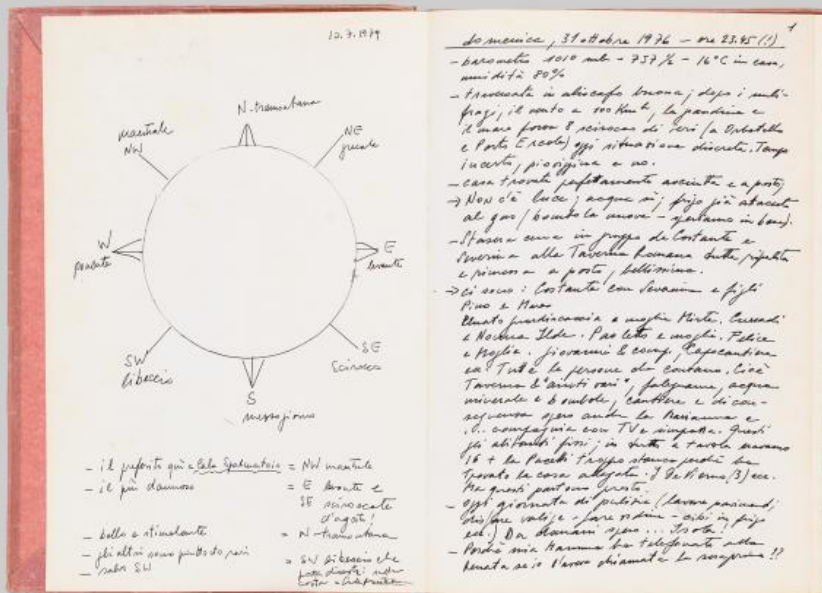 12.7.1979
N-tramontana
NE
grecale
maestrale
NW
W
ponente
E
levante
SW
libeccio
SE
Scirocco
S
mezzogiorno
- il preferito qui a Cala Spalmatoia = NW maestrale
- il più dannoso = E levante e
SE sciroccate
d'agosto!
- bello e stimolante = N-tramontana
- gli altri sono piuttosto rari
- salvo SW = SW libeccio che
1
domenica, 31 ottobre 1976 - ore 23.45 (!)
- barometro 1010 mb - 757 % - 16°C in casa,
umidità 80%
- traversata in aliscafo buona; dopo i nubi-
fragi, il vento a 100 Km/h, la grandine e
il mare forza 8 scirocco di ieri (a Orbetello
e Porto Ercole) oggi situazione discreta. Tempo
incerto, pioviggina e no.
- casa trovata perfettamente asciutta e a posto;
→ Non c'è luce; acqua sì; frigo già attaccato
al gas (bombola nuova - speriamo in bene).
- Stasera cena in gruppo da Costante e
Severina alla Taverna Romana tutta ripulita
e rimessa a posto, bellissima.
→ ci sono: Costante con Severina e figli
Pino e
guardiacaccia e moglie
e Nonna Ilde. Paoletto e moglie. Felice
e Moglie. Giovanni & comp.,
ecc. Tutte le persone che contano. Cioè
Taverna & "aiuti vari", falegname, acqua
minerale e bombole, cantiere e di con-
seguenza spero anche la Marianna e
compagnia con TV e simpatia. Questi
gli abitanti fissi; in tutto a tavola eravamo
16 + la Pacetti troppo stanca perché ha
trovato la casa allagata. I De Pierno (3) ecc.
Ma questi partono presto.
- oggi giornata di pulizia (lavare pavimenti,
disfare valige - fare ordine - cibi in frigo
ecc.) Da domani spero ... Isola!
- Perché mia Mamma ha telefonato alla
Renata se io l'avevo chiamata la sera prima!?